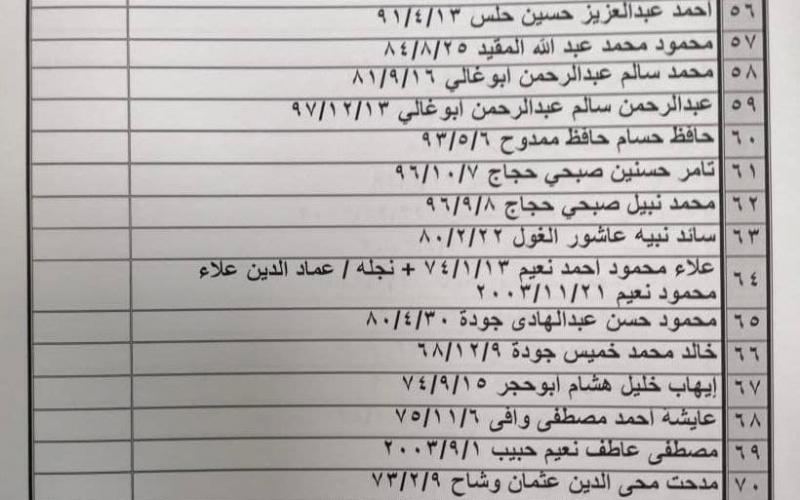 ٥٦ احمد عبدالعزيز حسين حلس ٩١/٤/١٣
٥٧ محمود محمد عبد الله المقيد ٨٤/٨/٢٥
٥٨ محمد سالم عبدالرحمن ابوغالي ٨١/٩/١٦
٥٩ عبدالرحمن سالم عبدالرحمن ابوغالي ٩٧/١٢/١٣
٦٠ حافظ حسام حافظ ممدوح ٩٣/٥/٦
٦١ تامر حسنين صبحي حجاج ٩٦/١٠/٧
٦٢ محمد نبيل صبحي حجاج ٩٦/٩/٨
٦٣ سائد نبيه عاشور الغول ٨٠/٢/٢٢
٦٤ علاء محمود احمد نعيم ٧٤/١/١٣ + نجله / عماد الدين علاء
محمود نعيم ٢٠٠٣/١١/٢١
٦٥ محمود حسن عبدالهادى جودة ٨٠/٤/٣٠
٦٦ خالد محمد خميس جودة ٦٨/١٢/٩
٦٧ إيهاب خليل هشام ابوحجر ٧٤/٩/١٥
٦٨ عايشة احمد مصطفى وافى ٧٥/١١/٦
٦٩ مصطفى عاطف نعيم حبيب ٢٠٠٣/٩/١
٧٠ مدحت محى الدين عثمان وشاح ٧٣/٢/٩